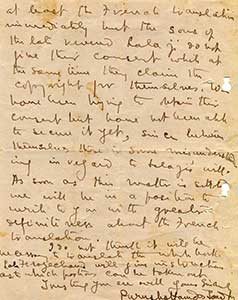 at least the French translation
immediately but the sons of
the late revered Lalaji do not
give their consent while at
the same time they claim the
copyright for themselves. We
have been trying to obtain this
consent but have not been able
to secure it yet, since between
themselves there is some misunderstand
ing in regard to Lalaji's will.
As soon as this matter is settled
we will be in a position to
write to you with greater
definiteness about the French
translation.
I do not think it will be
to translate the whole work.
will give instructions
as to which portions could be taken out
Trusting you are well yours sincerely
Purushottam